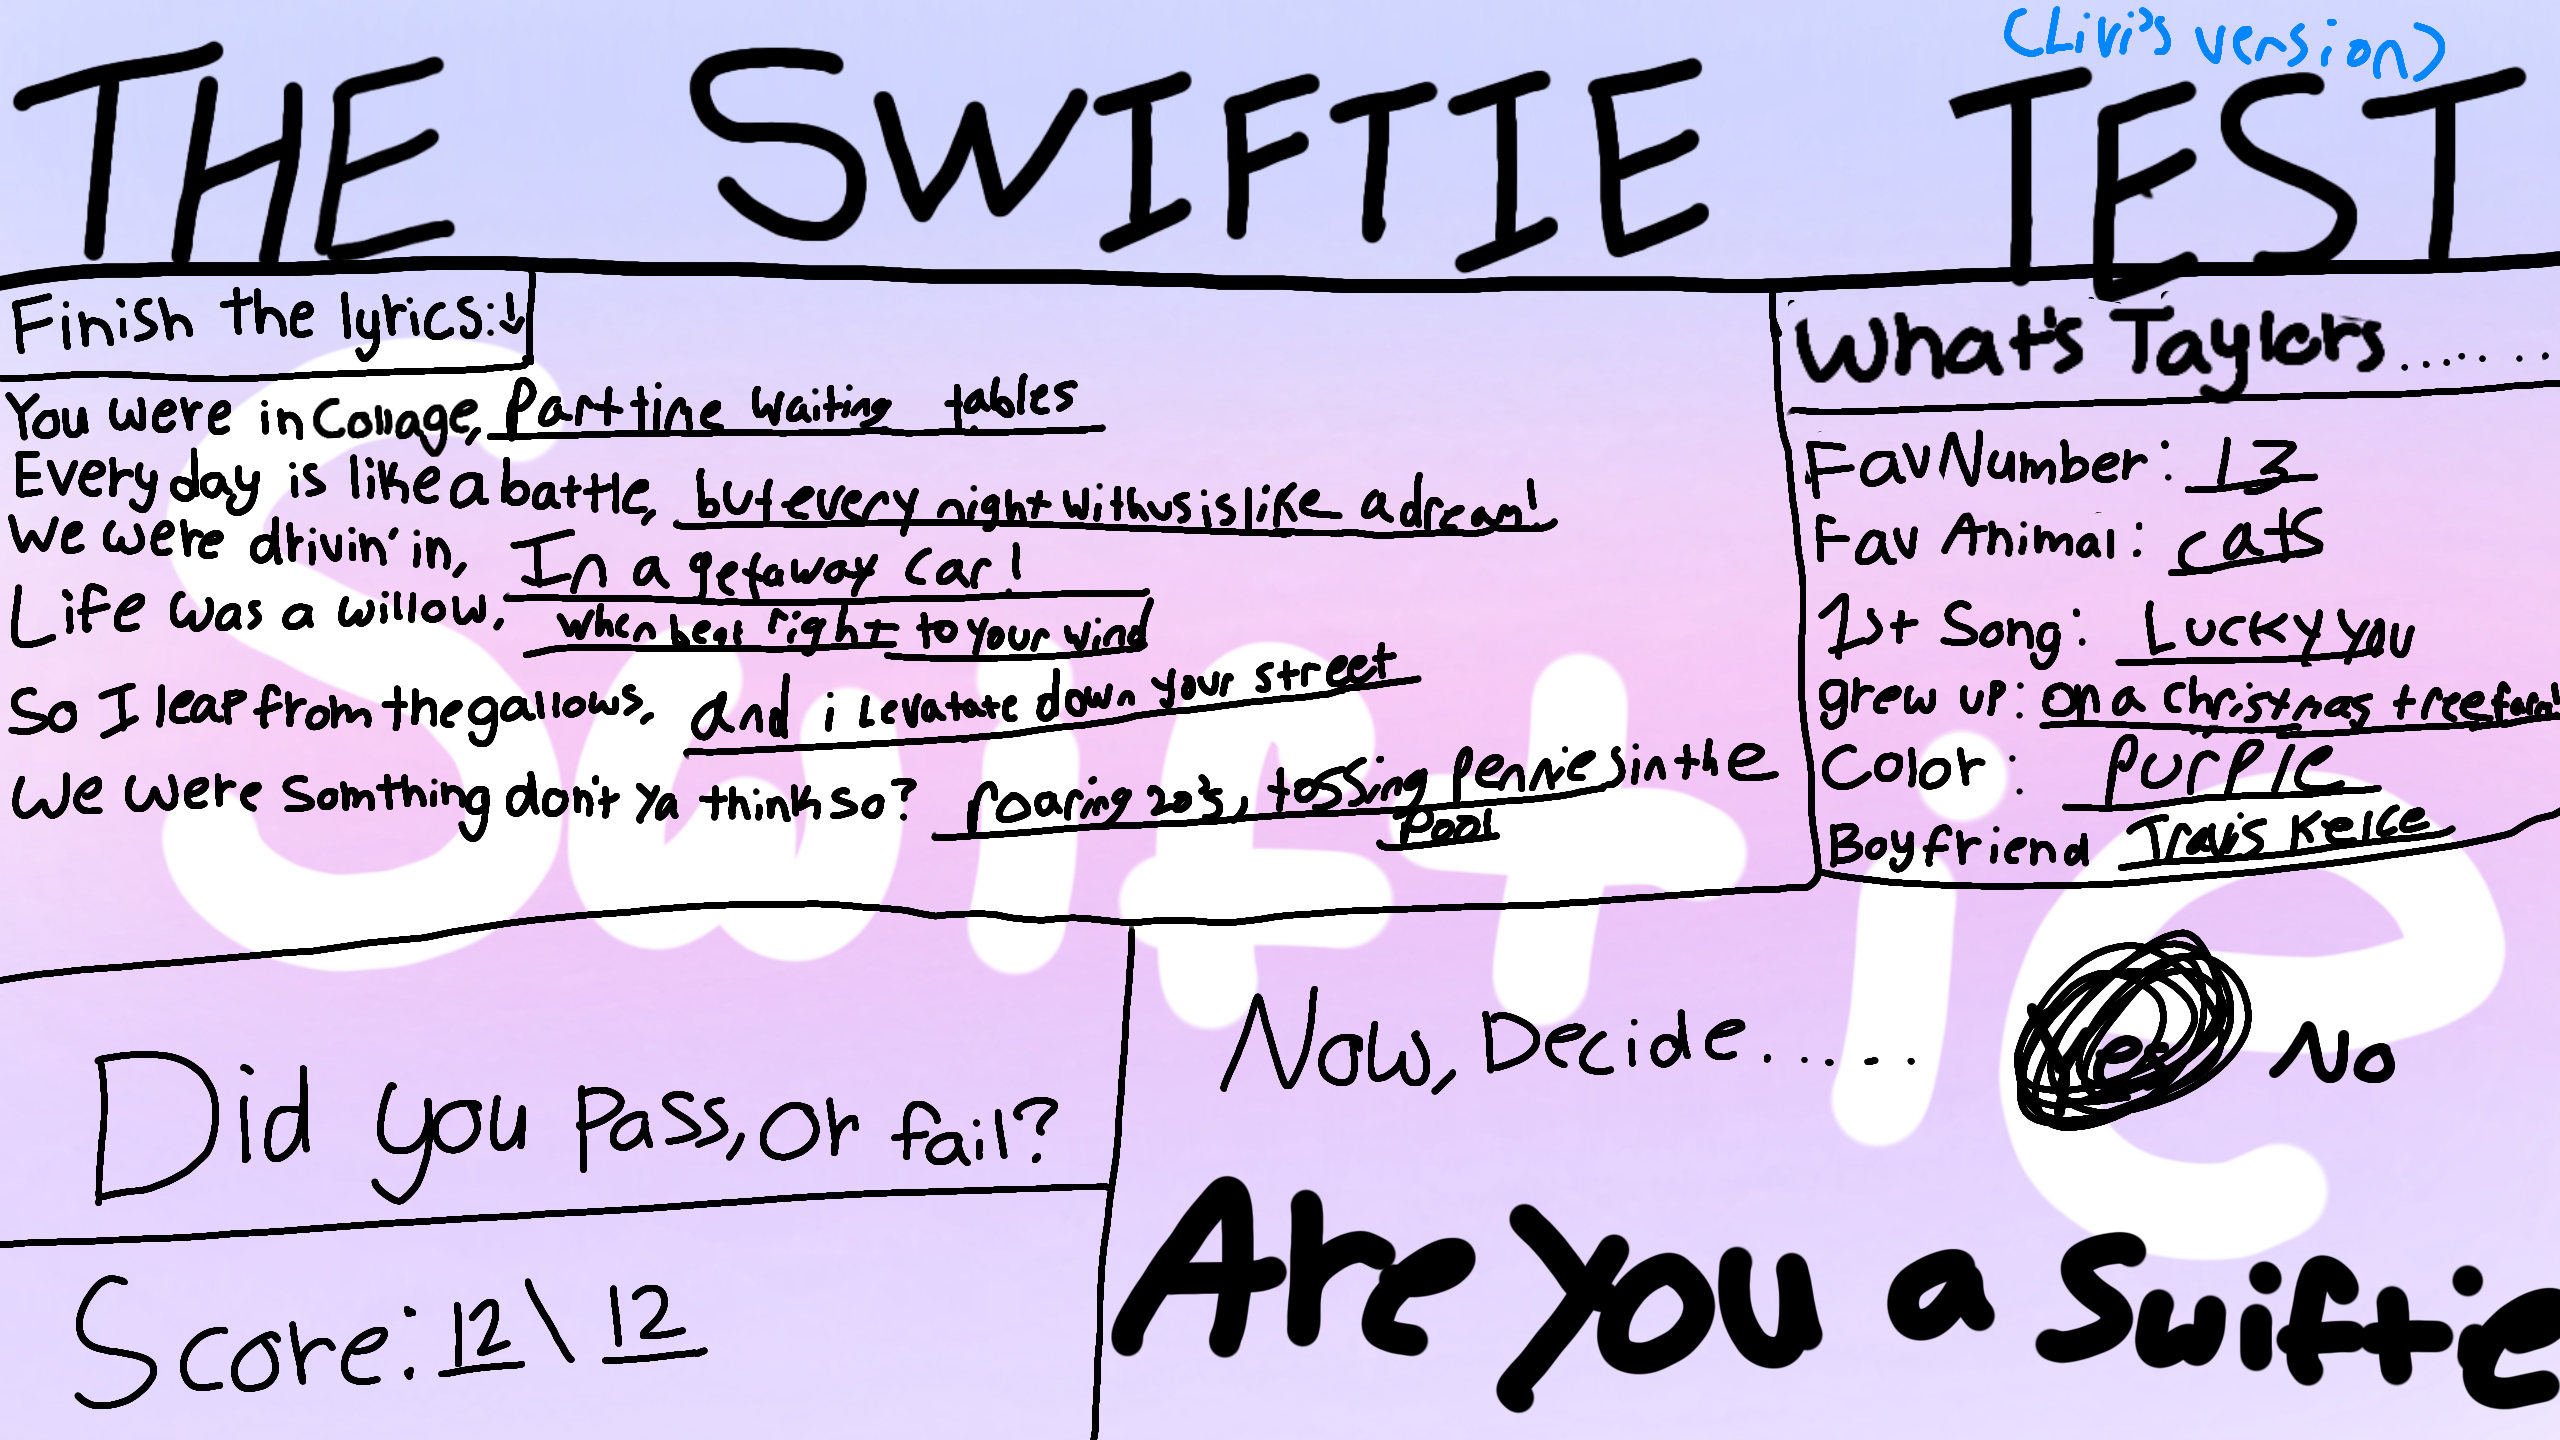 (Livi's version)
THE SWIFTIE TEST
Finish the lyrics:↓
You were in Collage, Part time waiting tables
Every day is like a battle, but every night with us is like a dream!
We were drivin' in, In a getaway car!
Life was a willow, when beat right to your wind
So I leap from the gallows, and i levatate down your street
We were somthing don't ya think so? roaring 20's, tossing pennies in the
pool
What's Taylors......
Fav Number: 13
Fav Animal: cats
1st Song: Lucky you
grew up: on a christmas tree farm!
Color: Purple
Boyfriend Travis Kelce
Swiftie
Did you pass, or fail?
Score: 12\12
Now, Decide..... Yes No
Are you a Swiftie